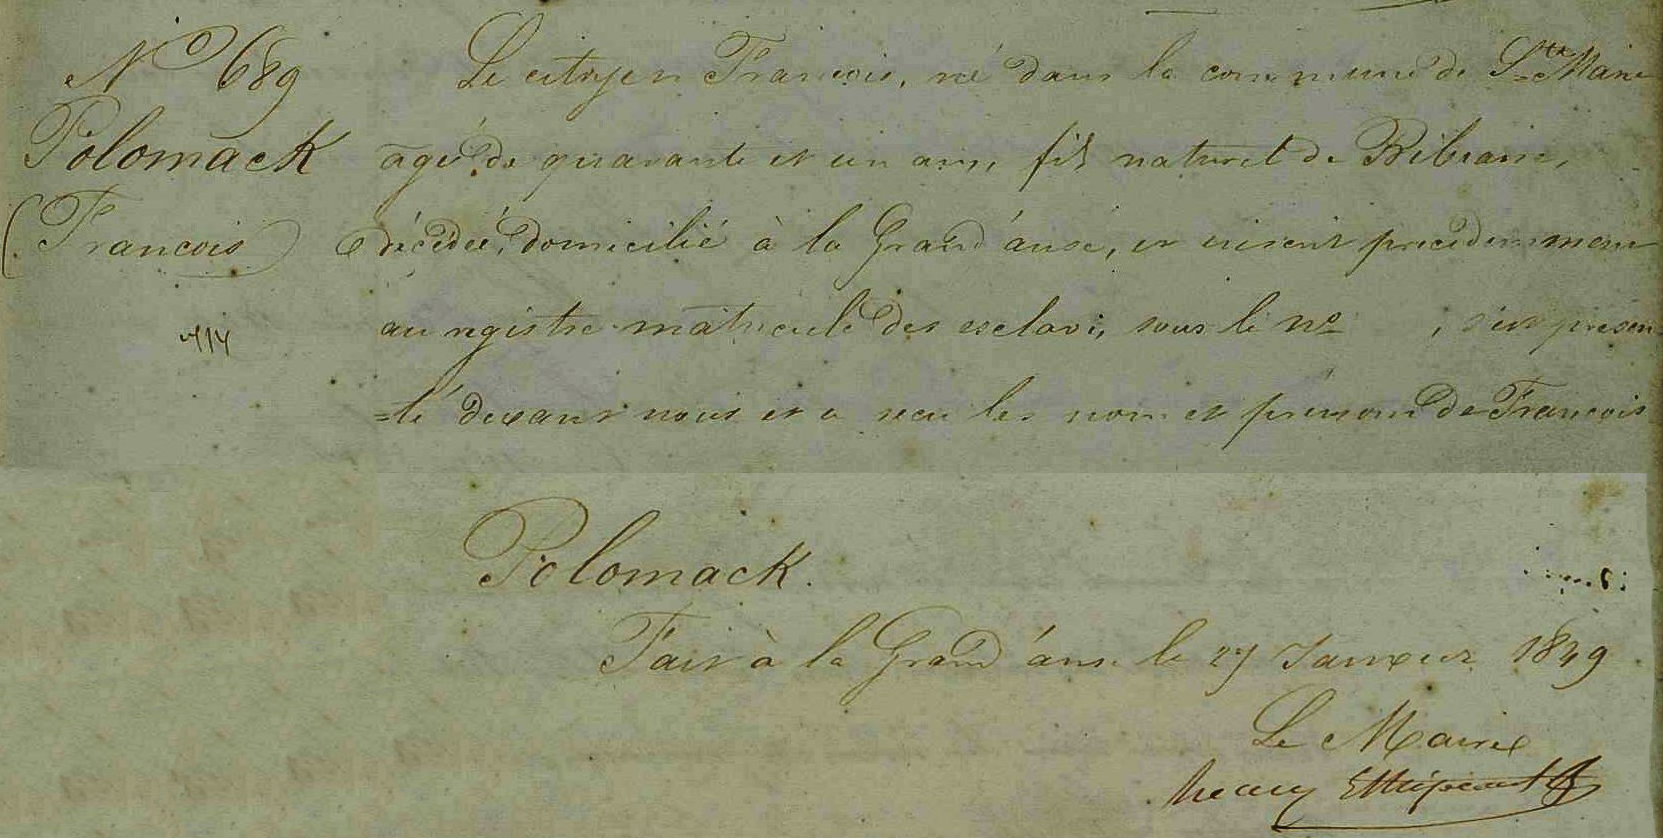 N° 689
Polomack
(François)
414
Le citoyen François, né dans la commune de Ste Marie
agé de quarante et un ans, fils naturel de Bibiane,
décédée, domicilié à la Grand'anse, et inscrit précédemment
au registre matricule des esclaves, sous le n° , s'est présen-
=té devant nous et a reçu les nom et prénom de François
Polomack.
Fait à la Grand'anse le 27 Janvier 1849
Le Maire